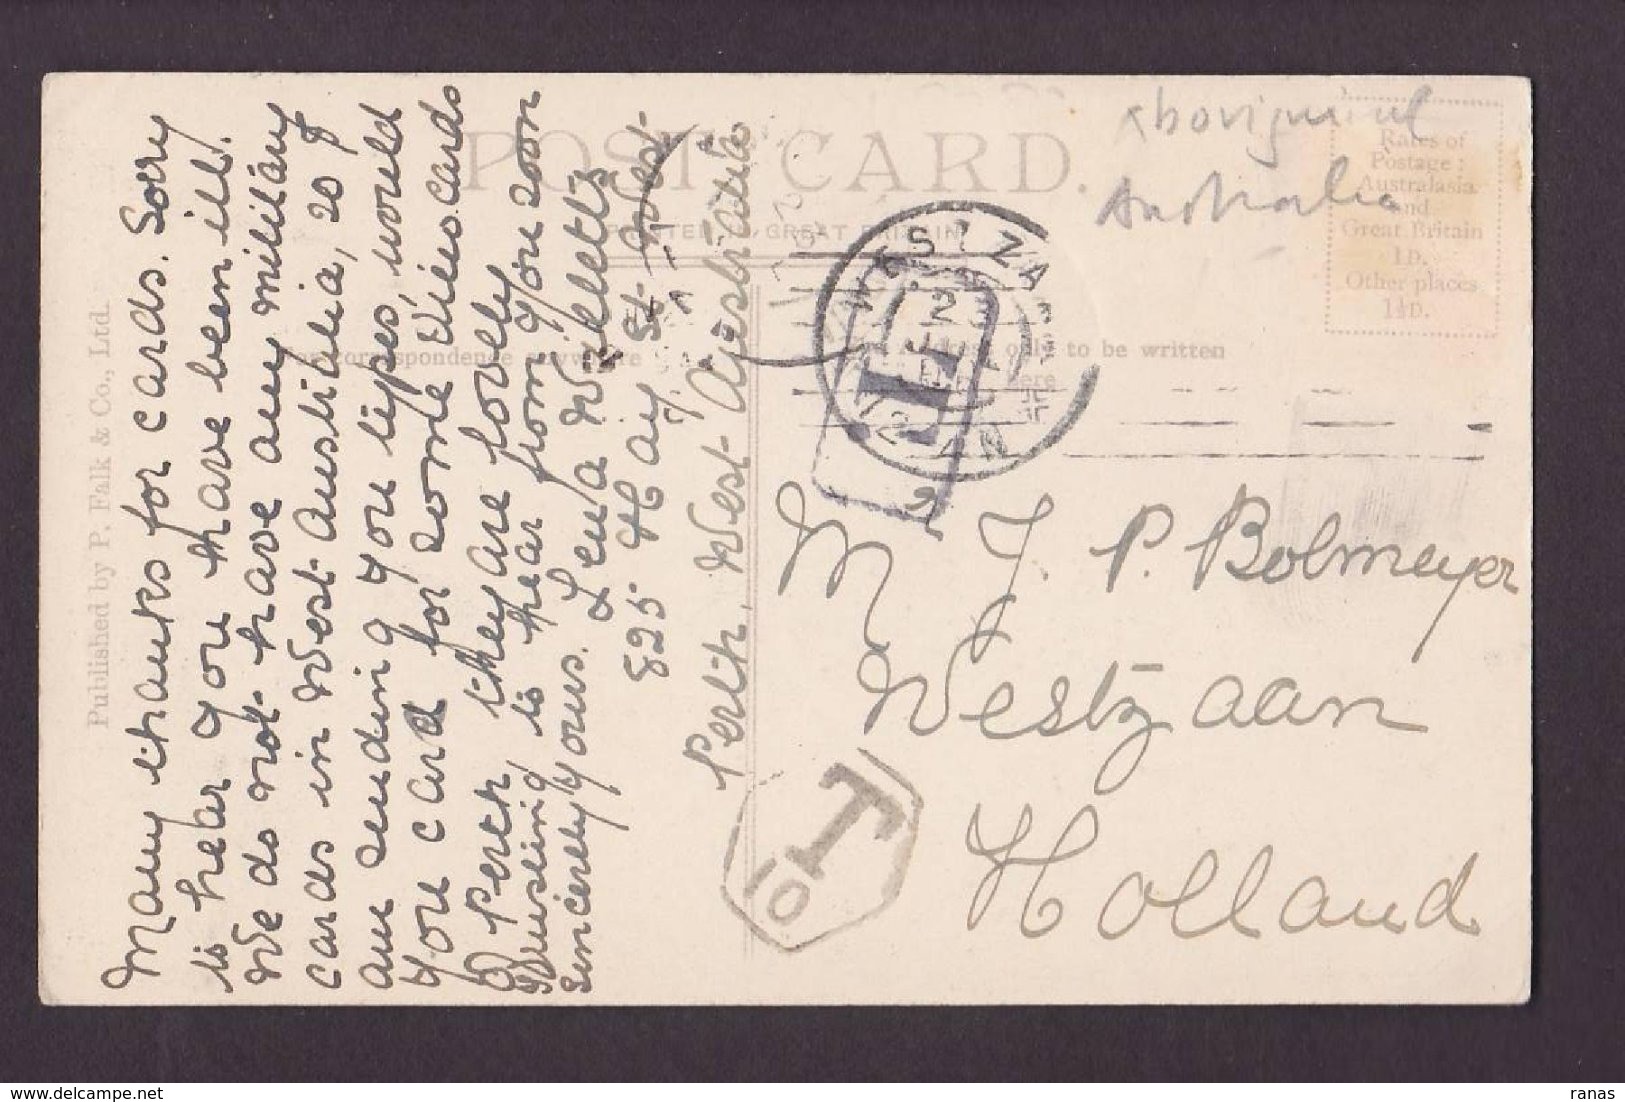 Published by P. Falk & Co., Ltd.
POST CARD.
PRINTED GREAT BRITAIN
For correspondence anywhere
Address only to be written
here
Rates of
Postage:
Australasia
and
Great Britain
1D.
Other places
1½D.
Aboriginal
Australia
Many thanks for cards. Sorry
to hear you have been ill.
We do not have any military
cards in West Australia, so I
am sending you types, would
you card for some view cards
of Perth, they are lovely
Trusting to hear from you soon
Sincerely yours. Lena
825 Hay St. West.
Perth, West Australia
WESTZAAN
T
T
10
M J. P. Bolmeyer
Westzaan
Holland
delcampe.net
ranas